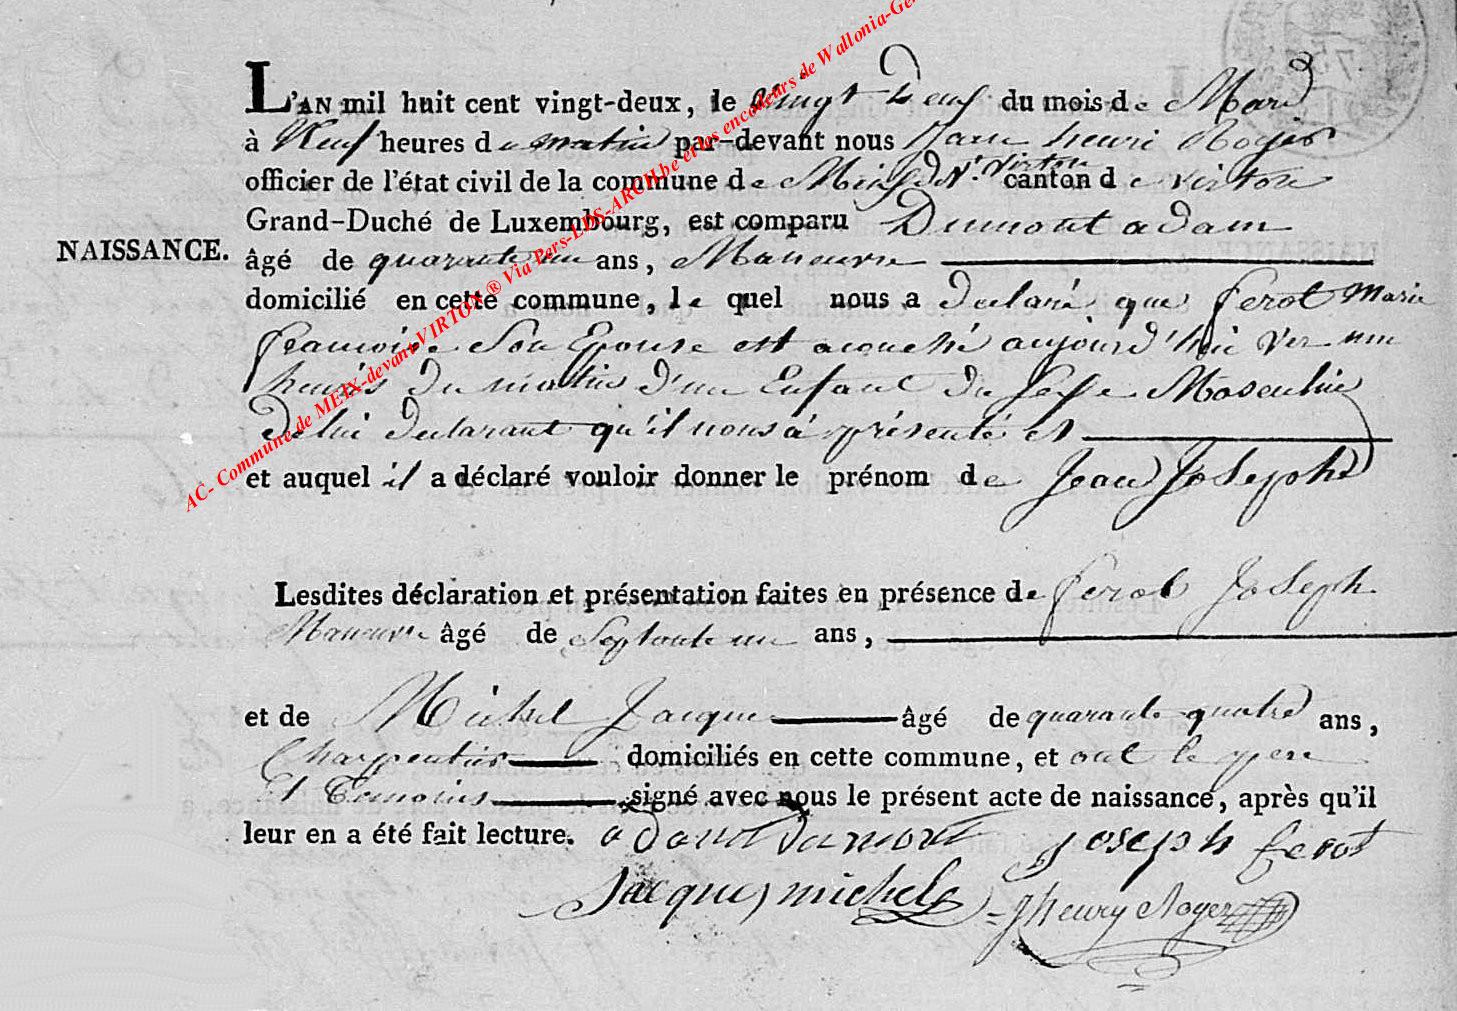 L'AN mil huit cent vingt-deux, le vingt Neuf du mois de Mars
à Neuf heures du matin par-devant nous Jean henri Roger
officier de l'état civil de la commune de Meix dvt. Virton canton de virton
Grand-Duché de Luxembourg, est comparu Dumont adam
NAISSANCE. âgé de quarante un ans, Maneuvre
domicilié en cette commune, le quel nous a declaré que ferot Marie
francoise Son Epouse est acouché aujourd'hui ver une
heures du matin d'un Enfant du sexe Masculin
de lui declarant qu'il nous a présenté et
et auquel il a déclaré vouloir donner le prénom de Jean Joseph
Lesdites déclaration et présentation faites en présence de ferot Joseph
Maneuvre âgé de Septante un ans,
et de Michel Jacque âgé de quarante quatre ans,
Charpentier domiciliés en cette commune, et ont le pere
et Temoins signé avec nous le présent acte de naissance, après qu'il
leur en a été fait lecture. adam dumont Joseph ferot
Jacques michel Jhenry Roger
AC- Commune de MEIX-devant-VIRTON ® Via Pers-LDS-ARCH.be et les encodeurs de Wallonia-Ge